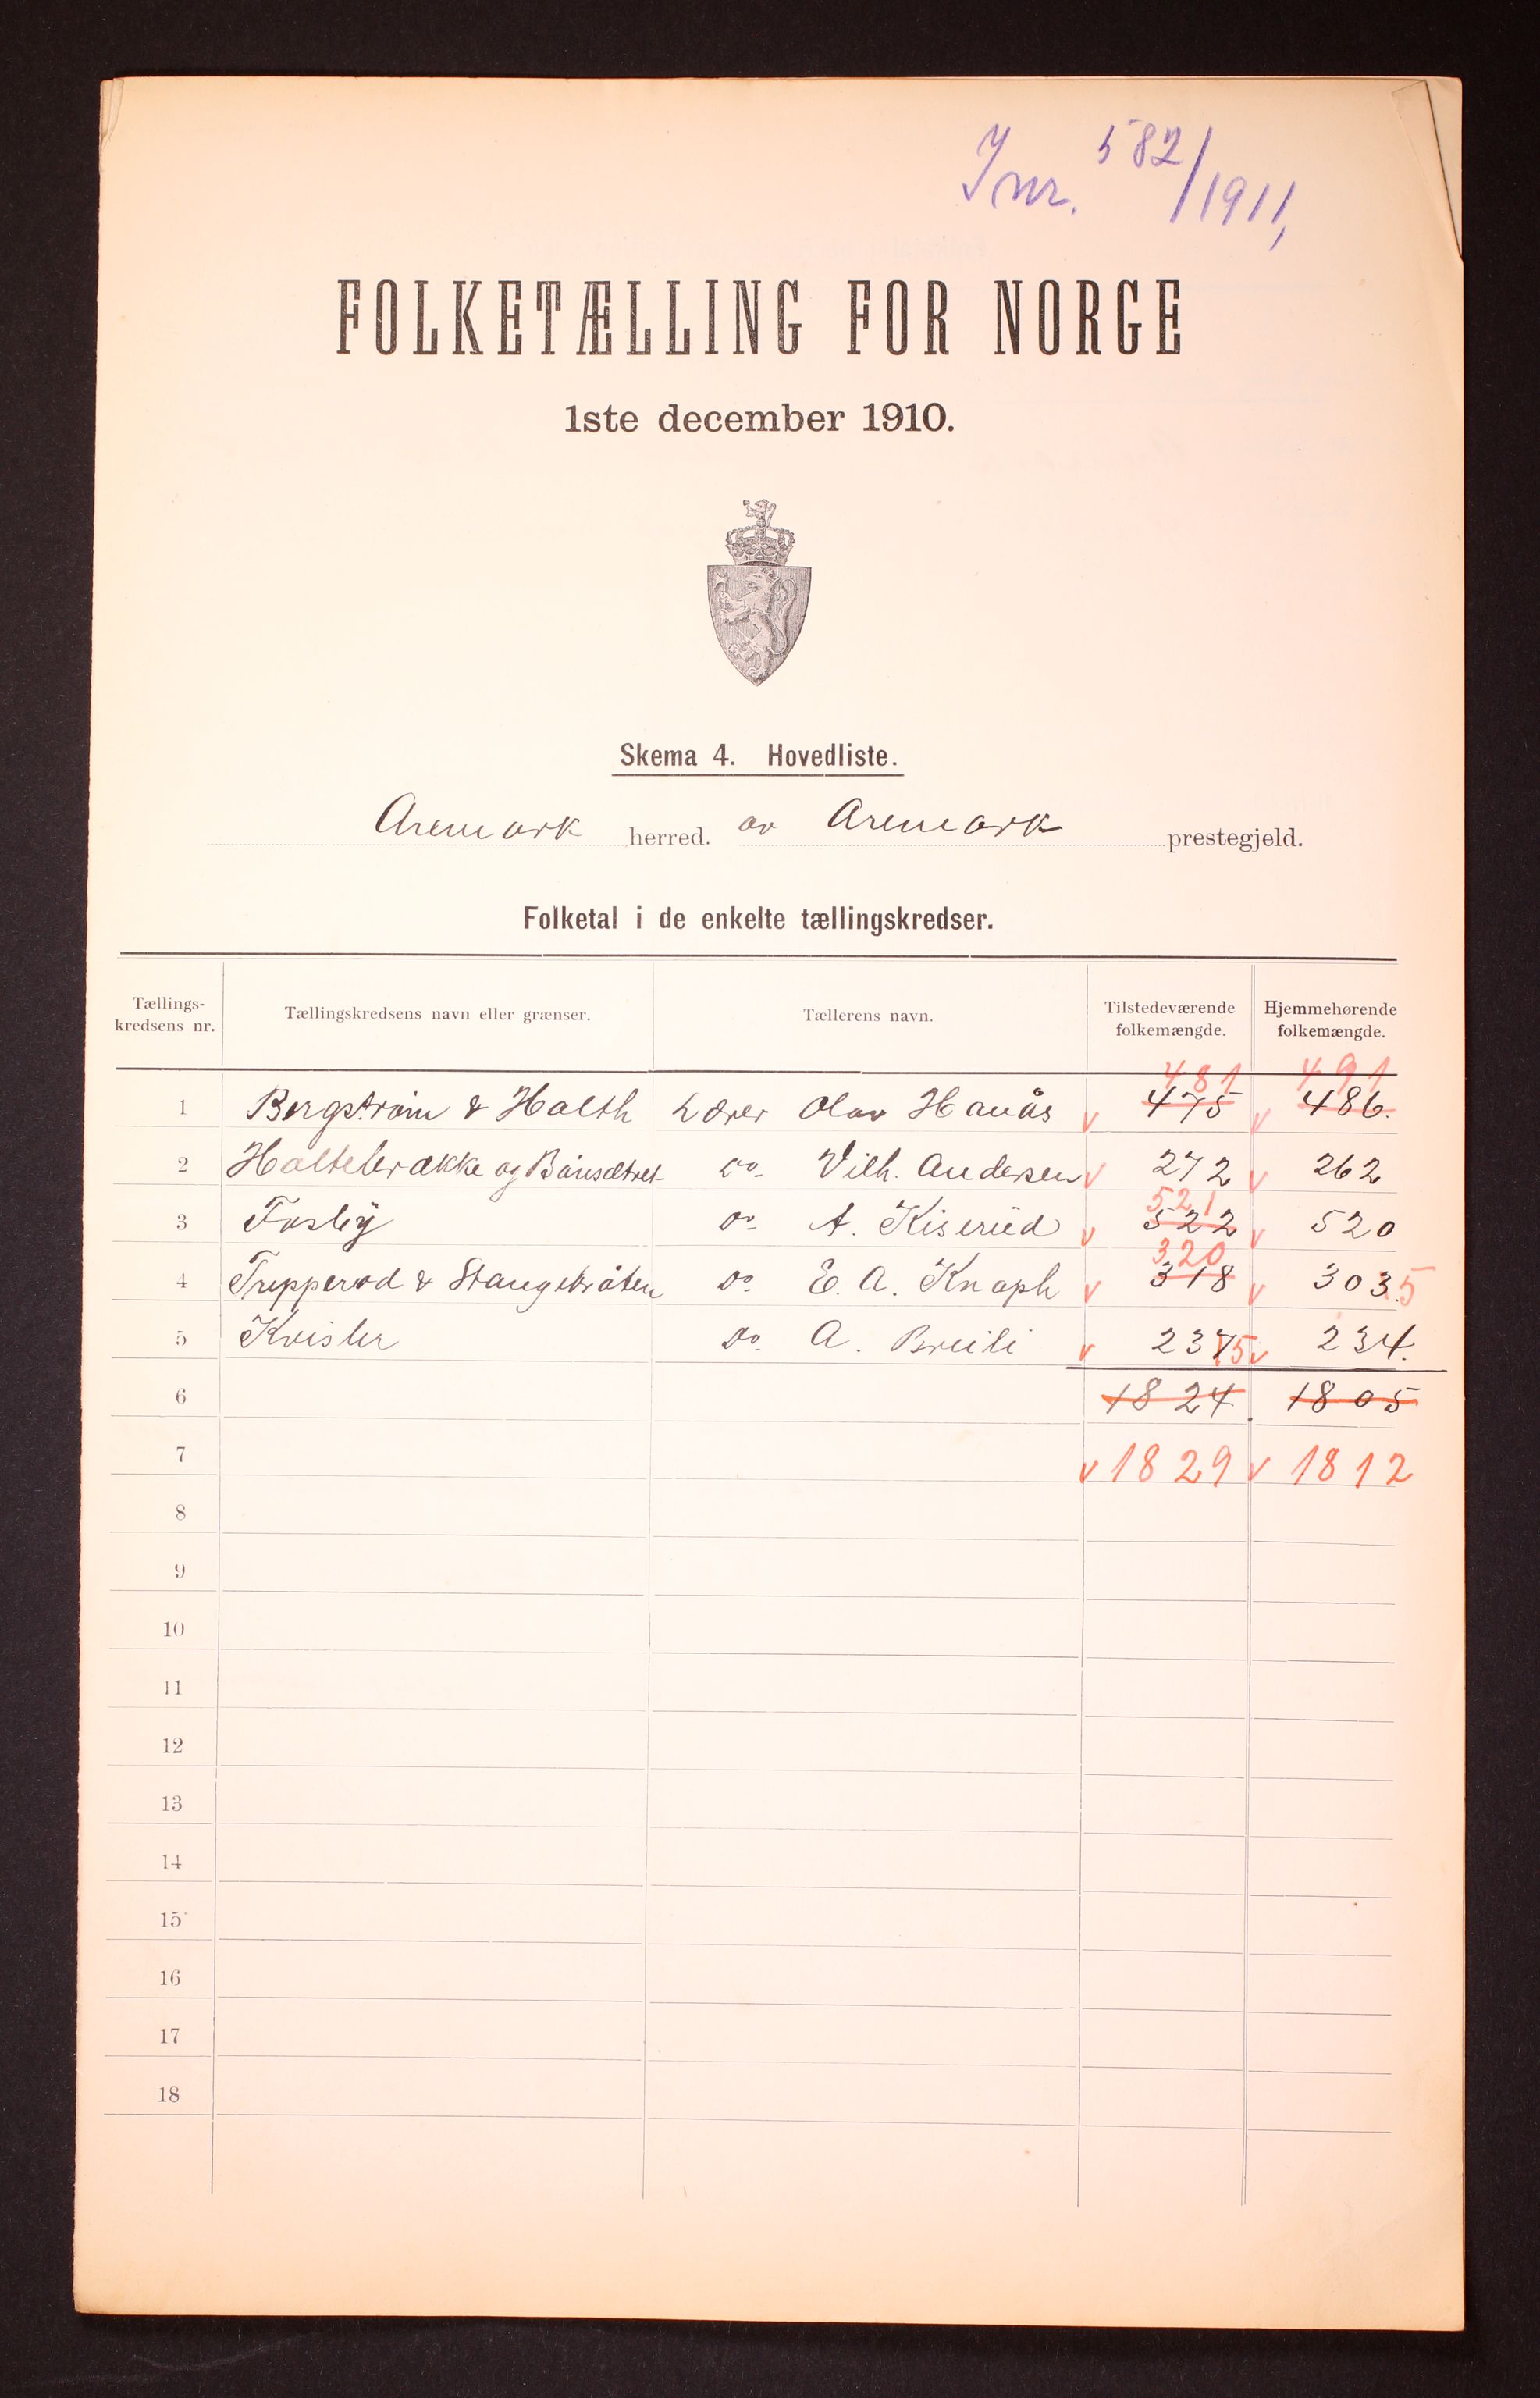 Jnr. 582/1911,
FOLKETÆLLING FOR NORGE
1ste december 1910.
Skema 4. Hovedliste.
Aremark herred. av Aremark prestegjeld.
Folketal i de enkelte tællingskredser.
Tællings-kredsens nr. Tællingskredsens navn eller grænser. Tællerens navn. Tilstedeværende folkemængde. Hjemmehørende folkemængde.
481 491
1 Bergstrøm & Holth Lærer Olav Hanås v 475 v 486.
2 Holtebrække og do. Vilh. Andersen v 272 v 262
521
3 Fosby do. A. Kiserud v 522 v 520
320
4 Tripperød & Stangebråten do. E. A. Knaph v 318 v 303.5
5 Kvisler do. A. Breili v 237 5 v 234.
6 1824. 1805
7 v 1829 v 1812
8
9
10
11
12
13
14
15
16
17
18